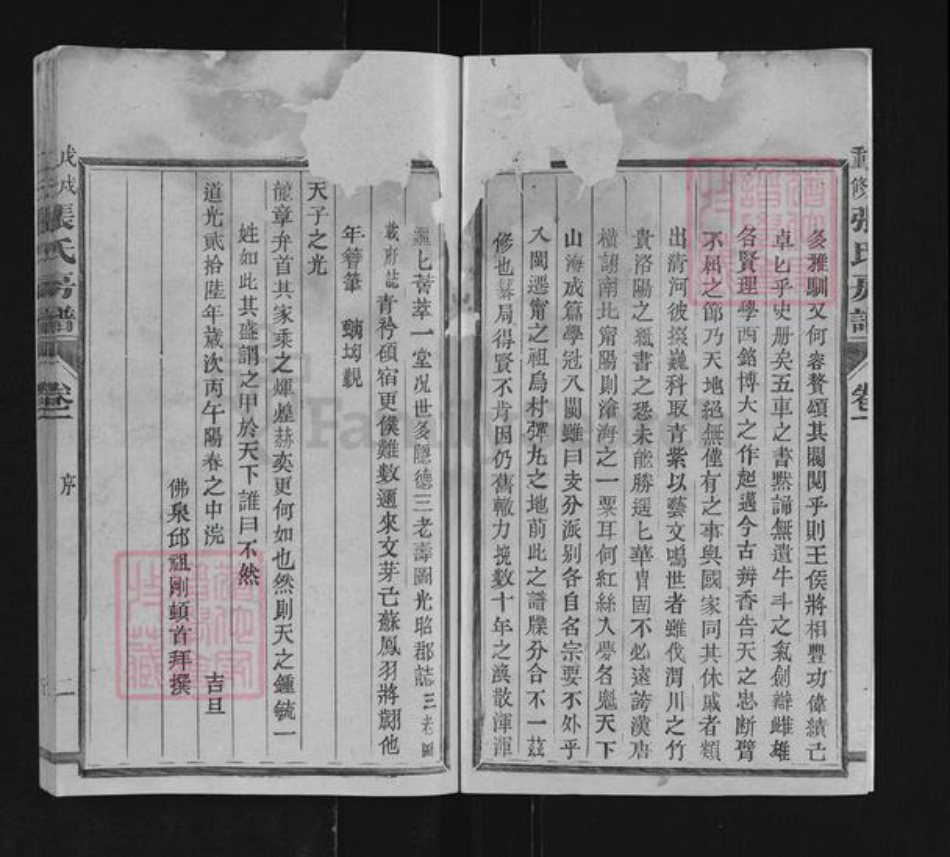 重修張氏房譜 卷一
多雅馴又何容贅頌其閥閱乎則王侯將相豐功偉績己
卓匕乎史册矣五車之書默諦無遺牛斗之氣劍辯雌雄
各賢理學西銘博大之作起邁今古辨香告天之忠斷臂
不屈之節乃天地絕無僅有之事與國家同其休戚者類
出清河彼掇巍科取青紫以藝文鳴世者雖伐渭川之竹
貴洛陽之紙書之恐未能勝遥匕華胄固不必遠誇漢唐
橫謝南北甯陽則滄海之一粟耳何紅絲入夢名魁天下
山海成篇學冠八閩雖曰支分派别各自名宗要不外乎
入閩遷甯之祖烏村彈丸之地前此之譜牒分合不一茲
修也纂局得賢不肯因仍舊轍力挽數十年之渙散渾渾
匕薈萃一堂况世多隱德三老壽圖光昭郡誌三老圖
載府誌青衿碩宿更僕難數邇來文芽已蘇鳳羽將翽他
年簪筆 觀
天子之光
龍章弁首其家乘之煇煌赫奕更何如也然則天之鍾毓一
姓如此其盛謂之甲於天下誰曰不然
道光貳拾陸年歲次丙午陽春之中浣 吉旦
佛泉邱祖剛頓首拜撰
戊戌張氏房譜 卷一 序 二